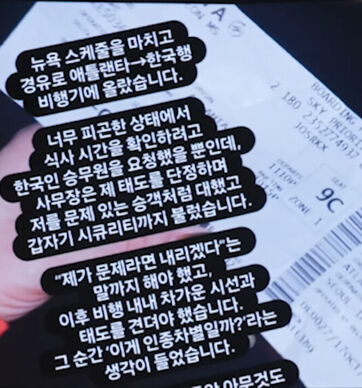 뉴욕 스케줄을 마치고
경유로 애틀랜타→한국행
비행기에 올랐습니다.
너무 피곤한 상태에서
식사 시간을 확인하려고
한국인 승무원을 요청했을 뿐인데,
사무장은 제 태도를 단정하며
저를 문제 있는 승객처럼 대했고
갑자기 시큐리티까지 불렀습니다.
"제가 문제라면 내리겠다"는
말까지 해야 했고,
이후 비행 내내 차가운 시선과
태도를 견뎌야 했습니다.
그 순간 '이게 인종차별일까?'라는
생각이 들었습니다.
BOARDING
SKY PRIORI
2 180 2352774937
SEAT
9C
ZONE 1
1110P
SEOUL